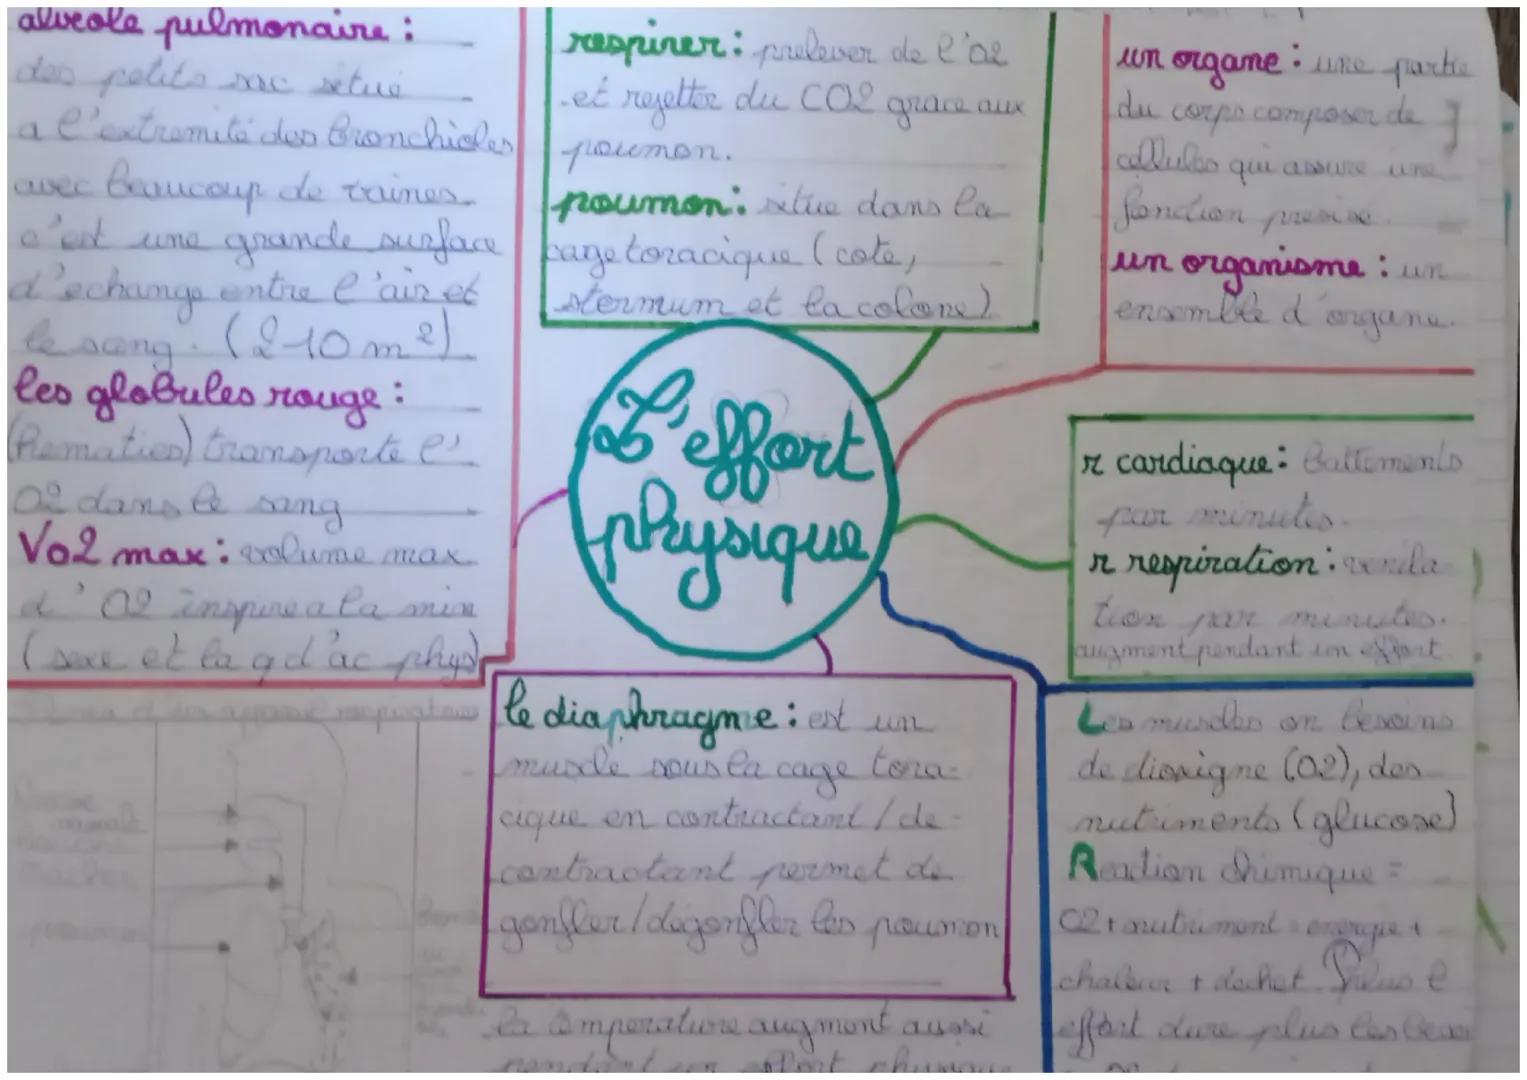 alveole pulmonaire :
des petits sac situé
a l'extremité des bronchioles
avec beaucoup de vaines
c'est une grande surface
d'echange entre l'air et
le sang. (210 m²)
les globules rouge :
(hematies) transporte l'
O2 dans le sang
Vo2 max : volume max
d'O2 inspire a la min
(sexe et la q d'ac phys)
respirer : prelever de l'O2
et rejetter du CO2 grace aux
poumon.
poumon : situe dans la
cage toracique (cote,
sternum et la colone)
un organe : une partie
du corps composer de
cellules qui assure une
fonction precise.
un organisme : un
ensemble d'organe.
L'effort
physique
r cardiaque : Battements
par minutes.
r respiration : ventila
tion par minutes.
augment pendant un effort
le diaphragme : est un
muscle sous la cage tora-
cique en contractant / de-
contractant permet de
gonfler / degonfler les poumon
la temperature augment aussi
pendant un effort physique
Les muscles on besoins
de dioxigne (O2), des
nutriments (glucose)
Reaction chimique =
O2 + nutriment = energie +
chaleur + dechet. Plus l
effort dure plus les